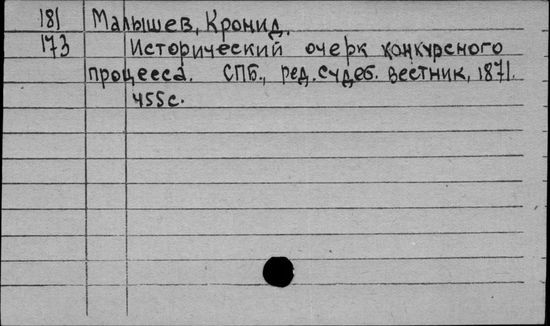 181 Малышев, Кронид.
173 Исторический очерк конкурсного
процесса. СПБ., ред. судеб. вестник, 1871.
455 с.